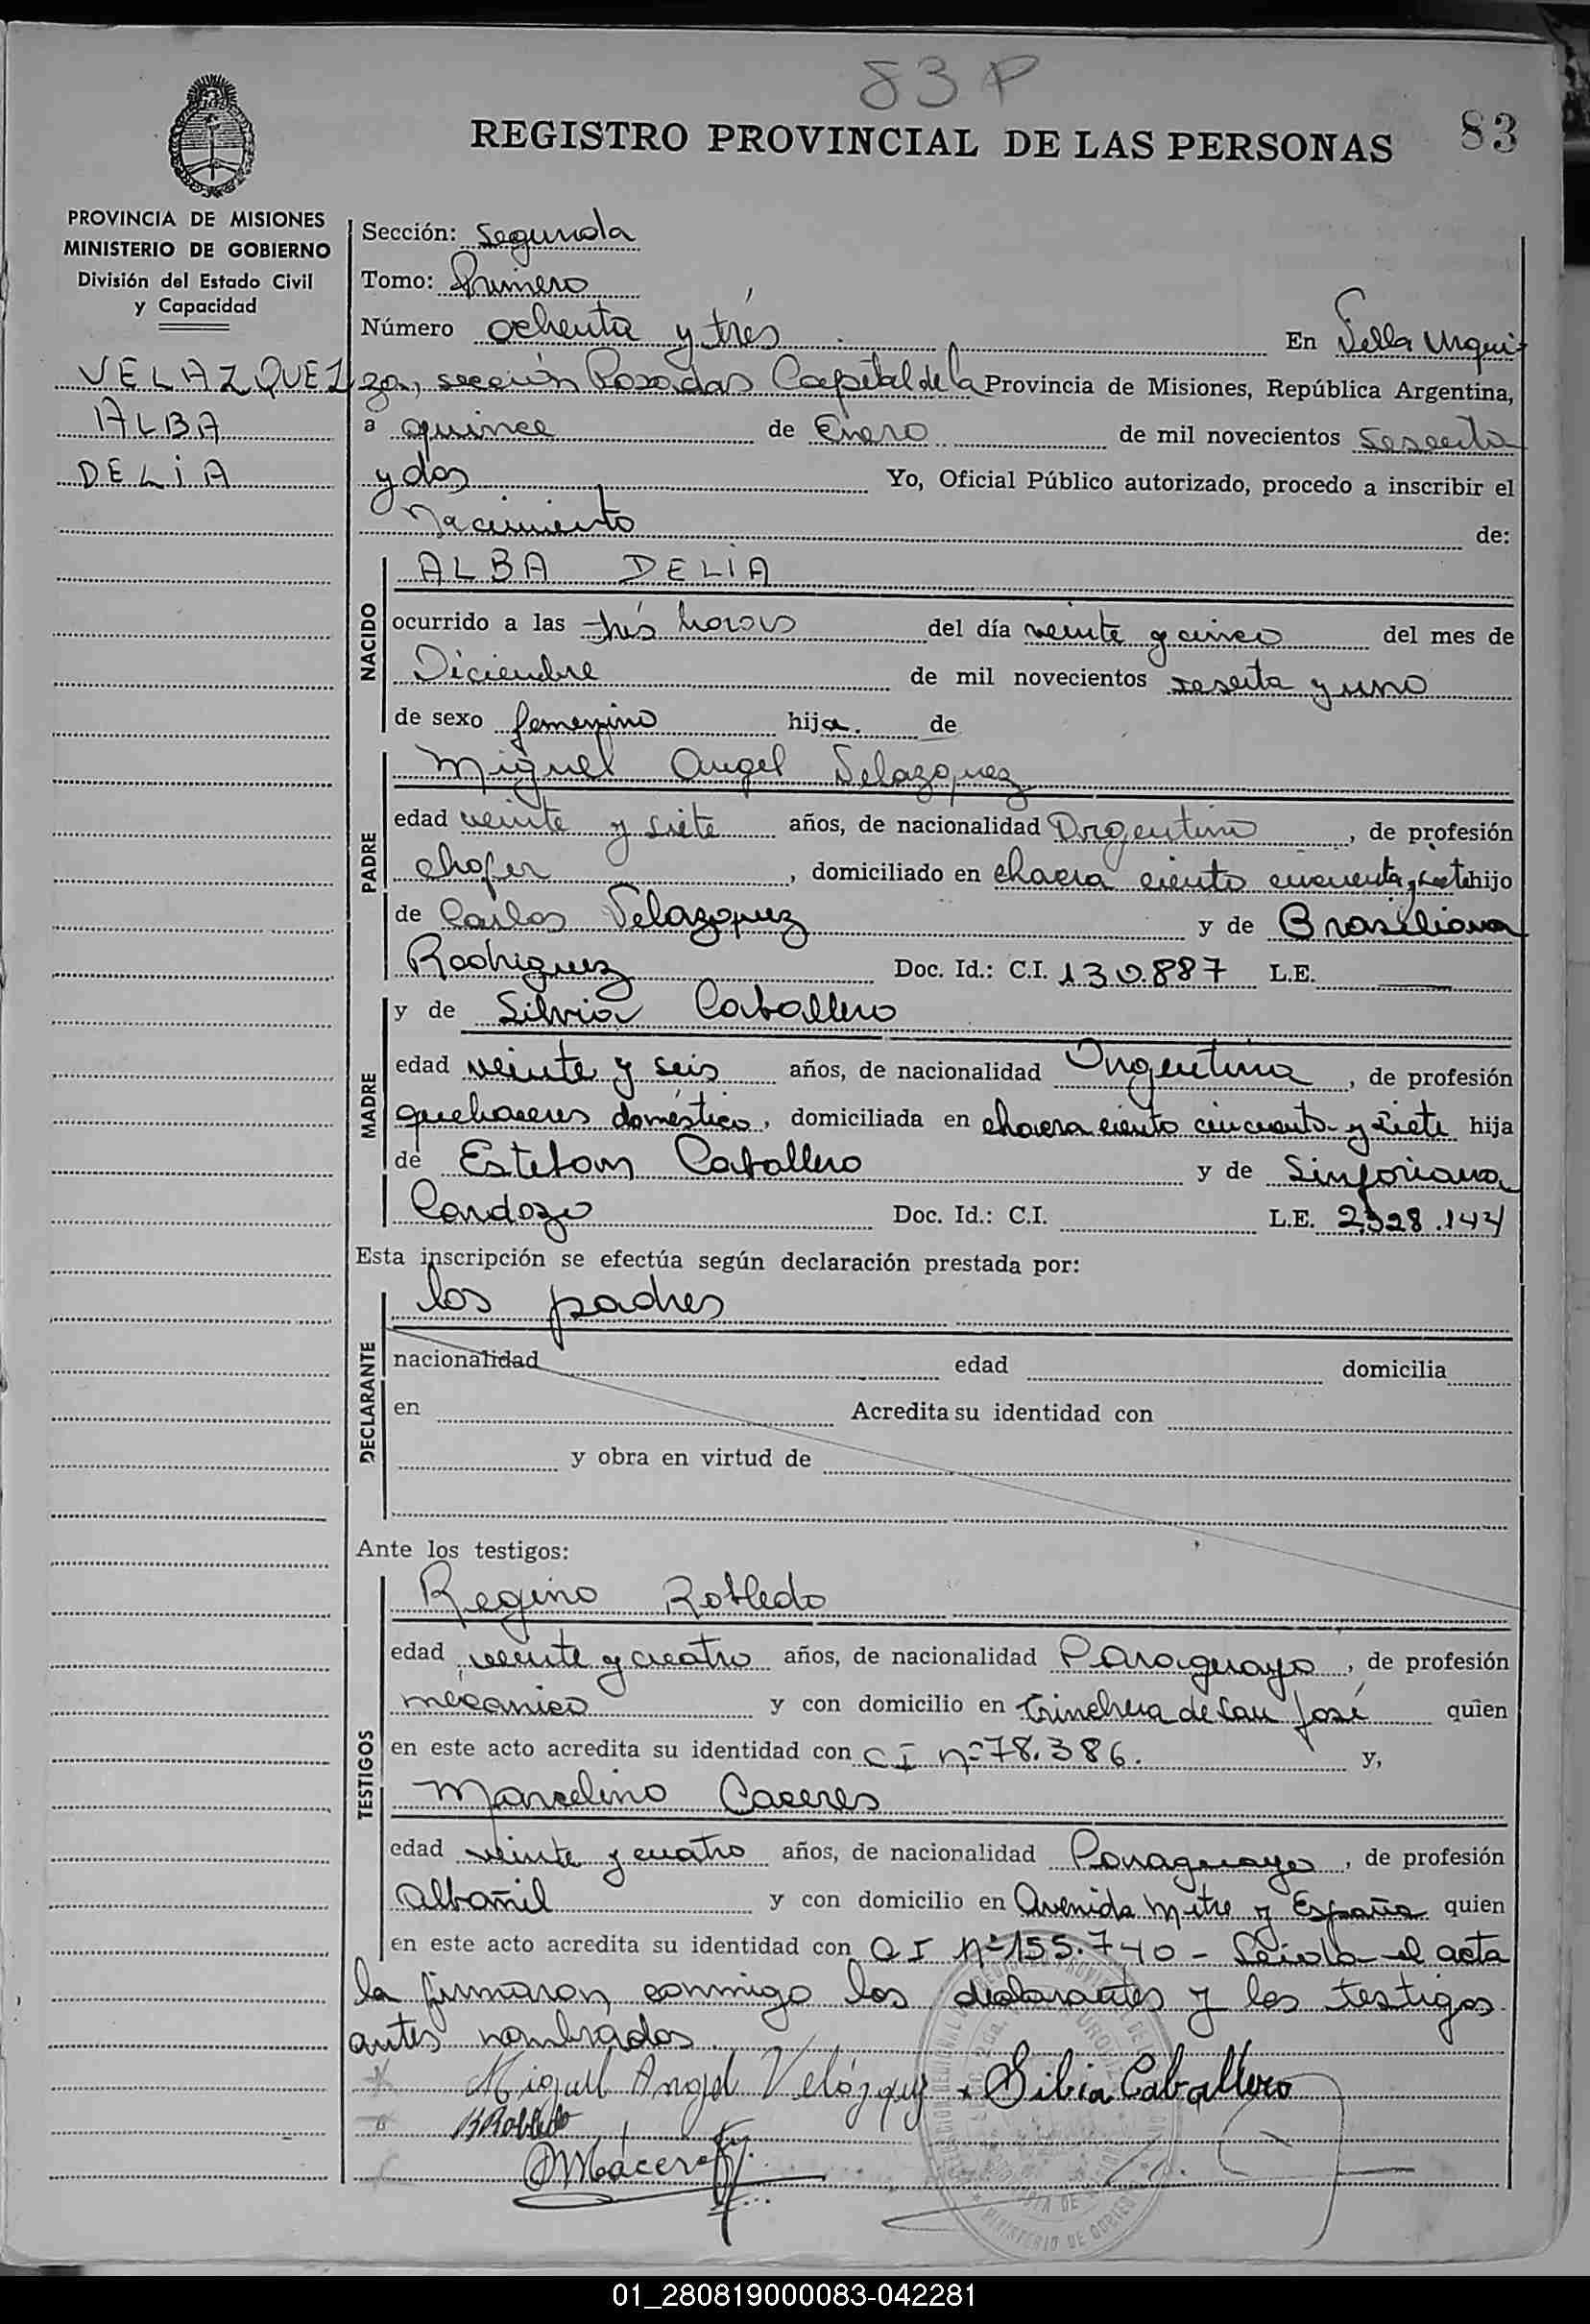 83 P
REGISTRO PROVINCIAL DE LAS PERSONAS 83
PROVINCIA DE MISIONES
MINISTERIO DE GOBIERNO
División del Estado Civil
y Capacidad
VELAZQUEZ
ALBA
DELIA
Sección: Segunda
Tomo: Primero
Número ochenta y trés En Villa Urqui
za, sección Posadas Capital de la Provincia de Misiones, República Argentina,
a quince de Enero de mil novecientos sesenta
y dos Yo, Oficial Público autorizado, procedo a inscribir el
Nacimiento de:
NACIDO
ALBA DELIA
ocurrido a las trés horas del día veinte y cinco del mes de
Diciembre de mil novecientos sesenta y uno
de sexo femenino hija. de
PADRE
Miguel Angel Velazquez
edad veinte y siete años, de nacionalidad Argentina, de profesión
chofer, domiciliado en chacra ciento cincuenta y siete hijo
de Carlos Velazquez y de Brasiliana
Rodriguez Doc. Id.: C.I. 130.887 L.E.
MADRE
y de Silvia Caballero
edad veinte y seis años, de nacionalidad Argentina, de profesión
quehaceres doméstico, domiciliada en chacra ciento cincuenta y siete hija
de Esteban Caballero y de Sinforiana
Cardozo Doc. Id.: C.I. L.E.
Esta inscripción se efectúa según declaración prestada por:
DECLARANTE
los padres
nacionalidad edad domicilia
en Acredita su identidad con
y obra en virtud de
Ante los testigos:
TESTIGOS
Regino Robledo
edad veinte y cuatro años, de nacionalidad Paraguayo, de profesión
mecanico y con domicilio en trinchera de San José quien
en este acto acredita su identidad con CI nº 78.386. y,
Marcelino Caceres
edad veinte y cuatro años, de nacionalidad Paraguayo, de profesión
Albañil y con domicilio en Avenida Mitre y España quien
en este acto acredita su identidad con CI Nº 155.740 - Leida el acta
la firmaron conmigo los declarantes y los testigos
antes nombrados.
Miguel Angel Velázquez x Silvia Caballero
R Robledo
MCáceres
01_280819000083-042281